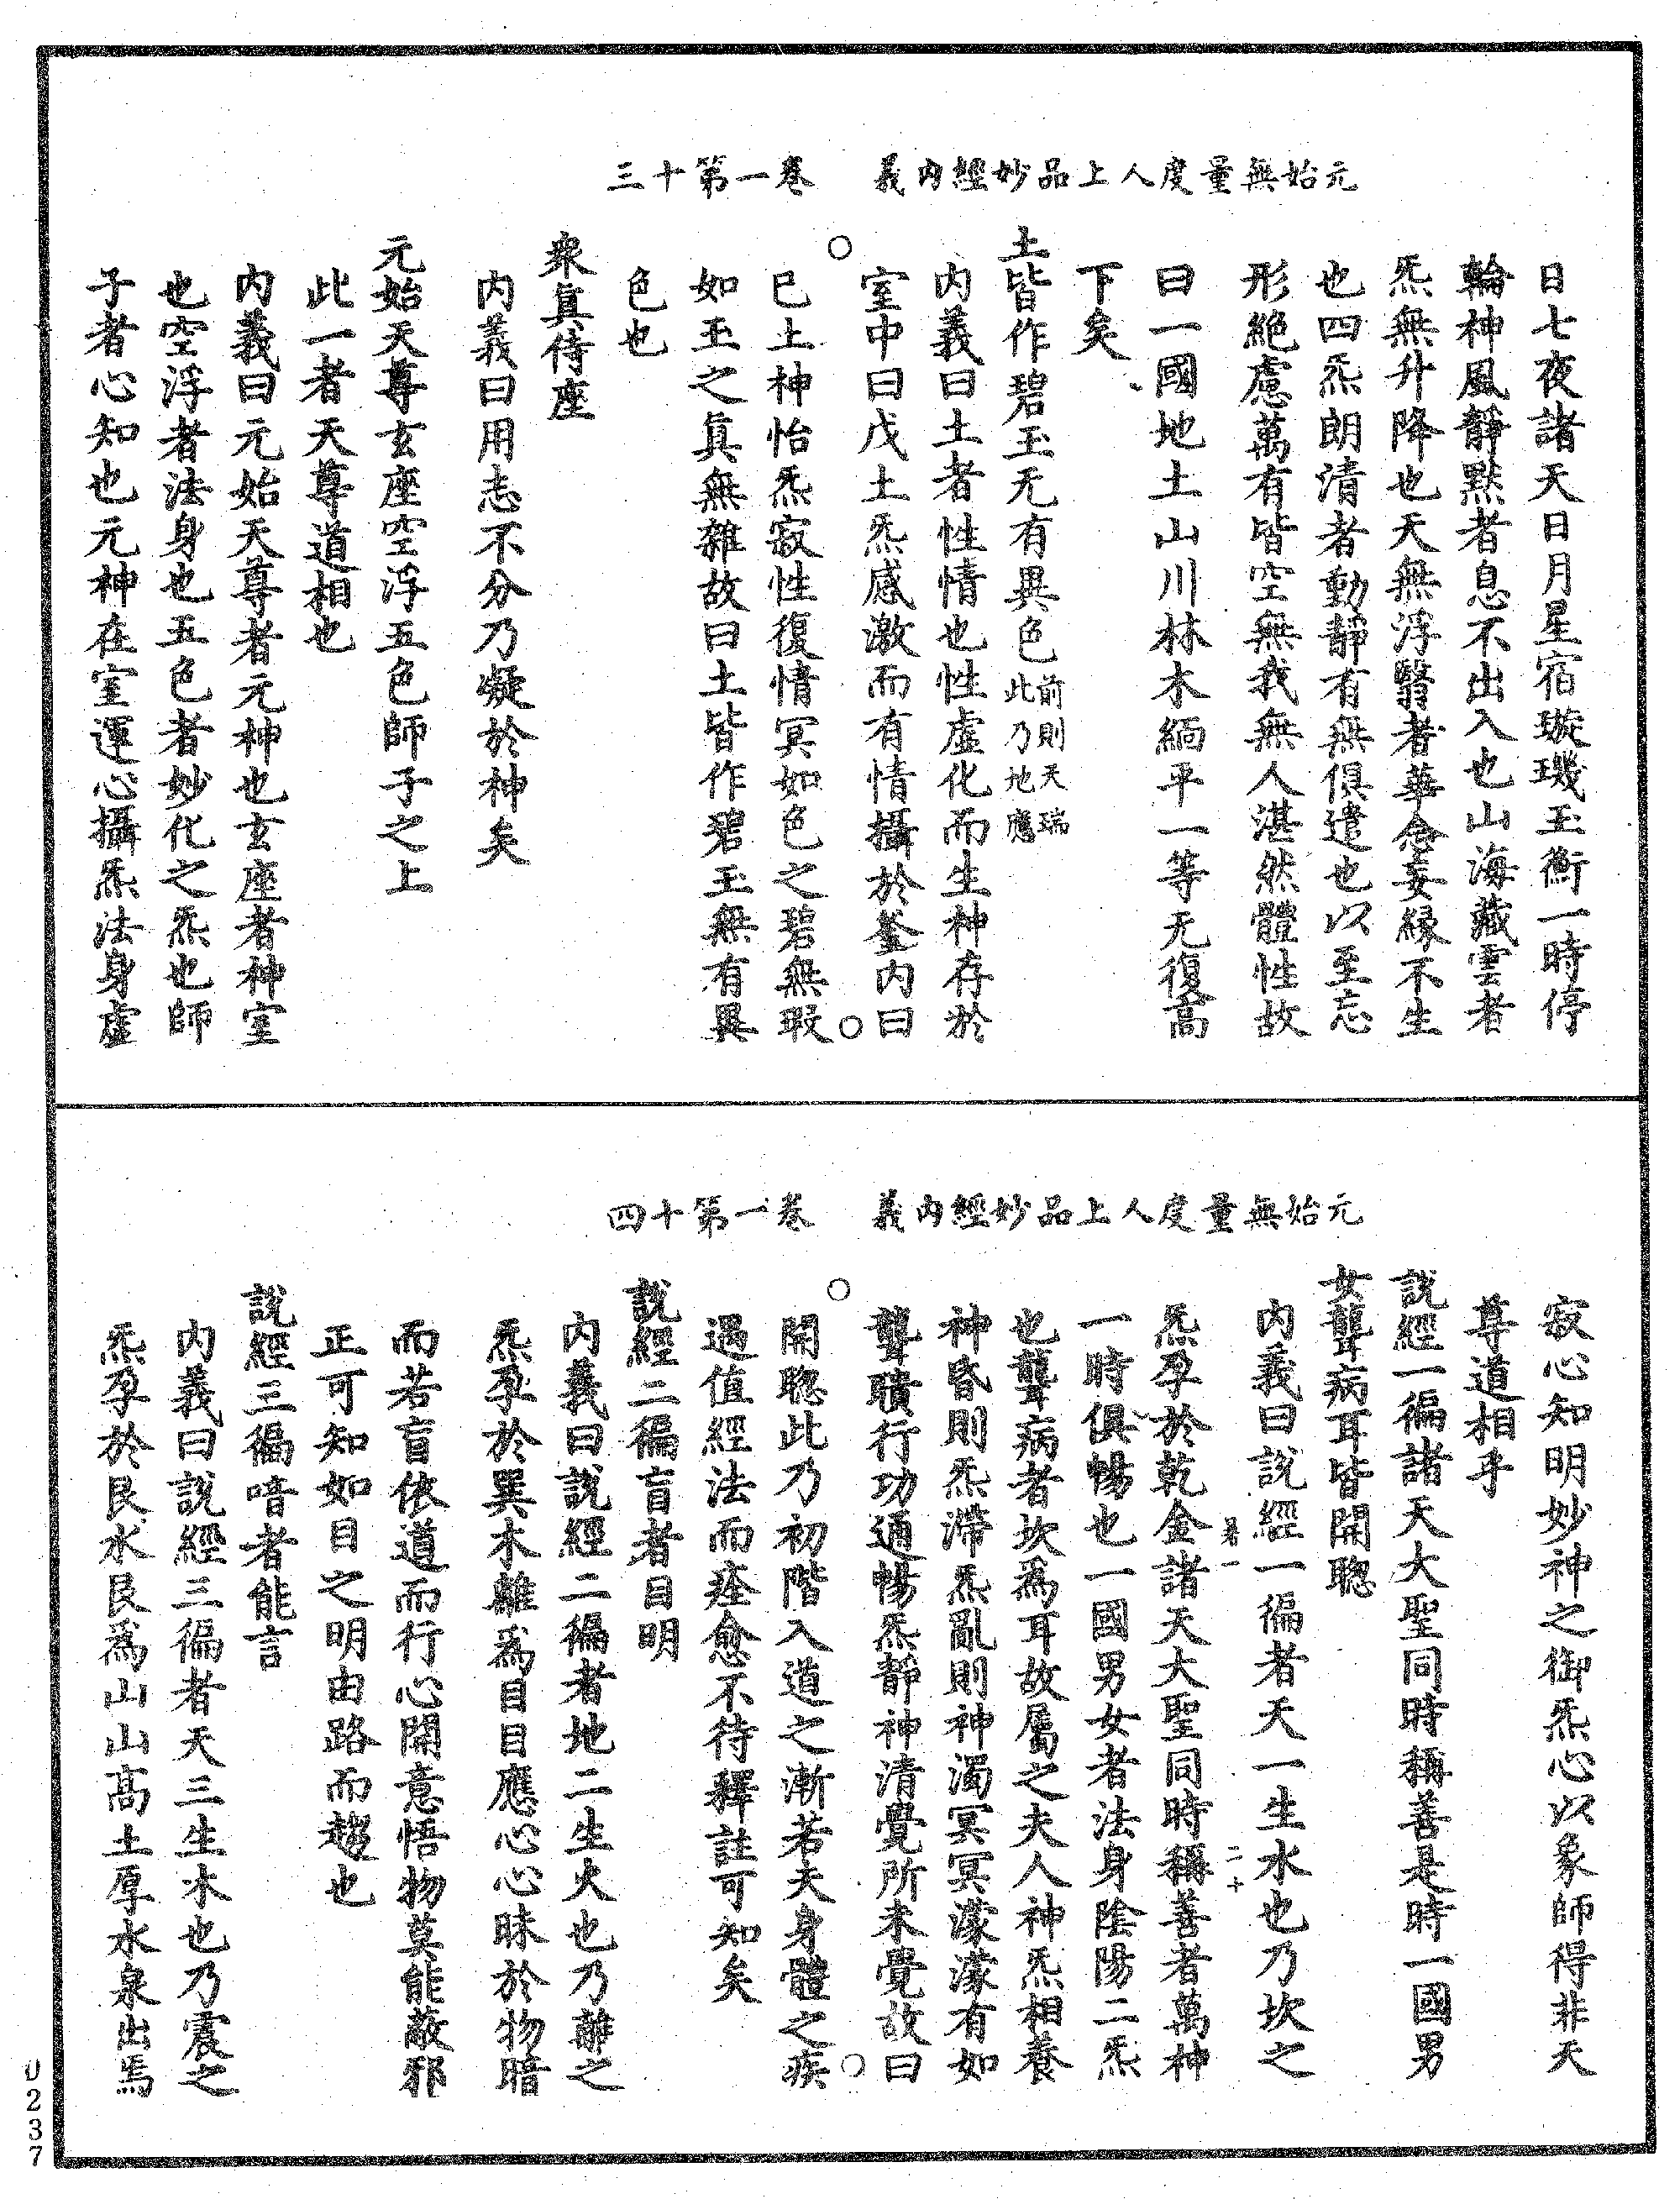 元始無量度人上品妙經內義　卷一第十三
日七夜諸天日月星宿璇璣玉衡一時停
輪神風靜默者息不出入也山海藏雲者
炁無升降也天無浮翳者華念妄緣不生
也四炁朗清者動靜有無俱遣也以至忘
形絕慮萬有皆空無我無人湛然體性故
曰一國地土山川林木緬平一等无復高
下矣
土皆作碧玉无有異色前則天瑞此乃地應
内義曰土者性情也性虛化而生神存於
室中曰戊土炁感激而有情攝於釜内曰
巳土神怡炁寂性復情冥如色之碧無瑕
如玉之真無雜故曰土皆作碧玉無有異
色也
衆真侍座
内義曰用志不分乃凝於神矣
元始天尊玄座空浮五色師子之上
此一者天尊道相也
内義曰元始天尊者元神也玄座者神室
也空浮者法身也五色者妙化之炁也師
子者心知也元神在室運心攝炁法身虛
元始無量度人上品妙經內義　卷一第十四
寂心知明妙神之御炁心以象師得非天
尊道相乎
說經一徧諸天大聖同時稱善是時一國男
女聾病耳皆開聰
内義曰說經一徧者天一生水也乃坎之
卷一　二十
炁孕於乾金諸天大聖同時稱善者萬神
一時俱暢也一國男女者法身陰陽二炁
也聾病者坎為耳故屬之夫人神炁相養
神昏則炁滯炁亂則神濁冥冥濛濛有如
聾聵行功通暢炁靜神清覺所未覺故曰
開聰此乃初階入道之漸若夫身體之疾
遇值經法而痊愈不待釋註可知矣
說經二徧盲者目明
内義曰說經二徧者地二生火也乃離之
炁孕於巽木離為目目應心心昧於物暗
而若盲依道而行心開意悟物莫能蔽邪
正可知如目之明由路而趨也
說經三徧喑者能言
内義曰說經三徧者天三生木也乃震之
炁孕於艮水艮為山山高土厚水泉出焉
0237